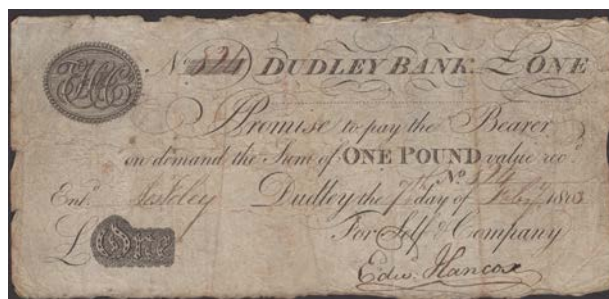 No. 524 DUDLEY BANK. £ ONE
I Promise to pay the Bearer
on demand the Sum of ONE POUND value recd.
No. 524
Entd. Dudley the 7th day of Feby. 1803
For Self & Company
£ One Edwd. Hancox